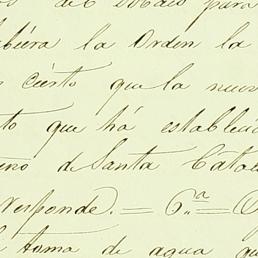 del Dorado para
abiéra la Orden la
cierto que la nue
to que há establecid
eno de Santa Catal
Responde. = 6.ª =
toma de agua qu